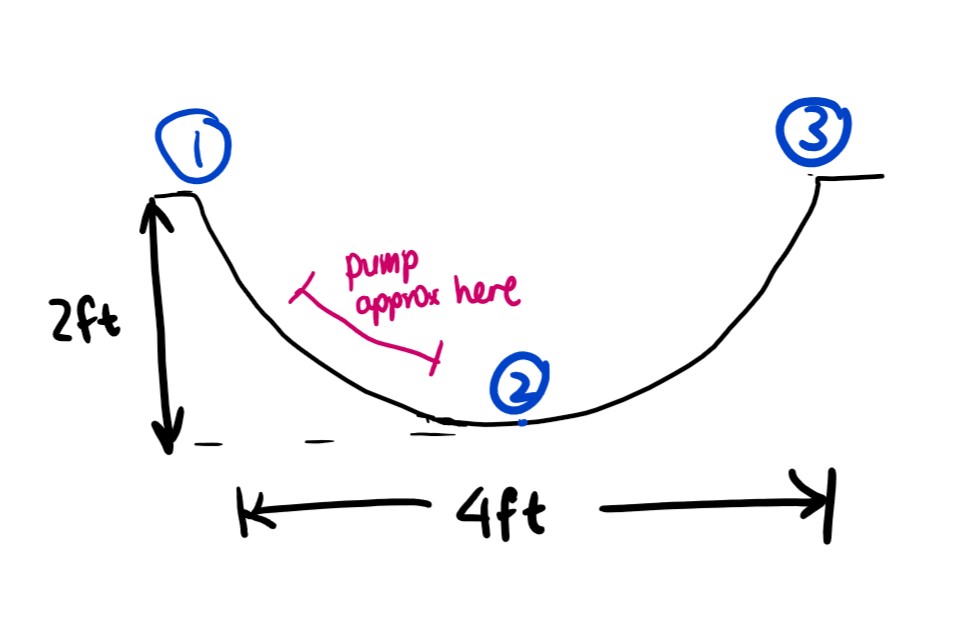 1
3
pump
approx here
2ft
2
4ft